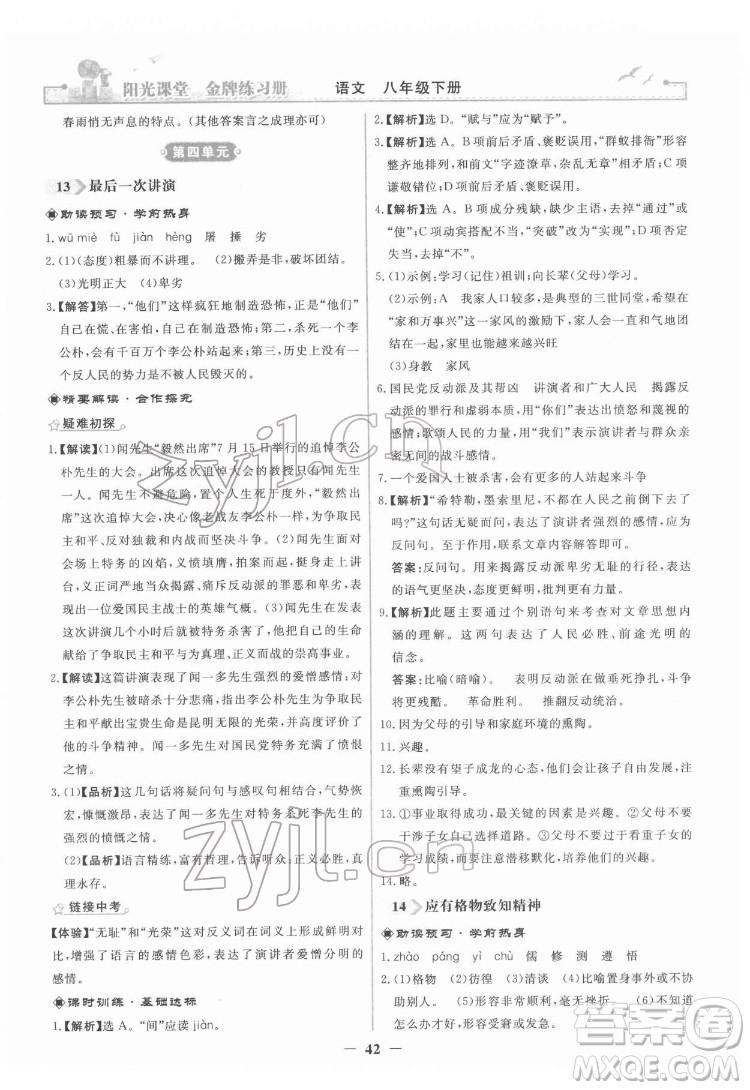 阳光课堂 金牌练习册 语文 八年级下册
春雨悄无声息的特点。(其他答案言之成理亦可)
第四单元
13 最后一次讲演
助读预习·学前热身
1. wū miè fù jiàn hèng 屠 捶 劣
2. (1)(态度)粗暴而不讲理。 (2)搬弄是非,破坏团结。
(3)光明正大 (4)卑劣
3.【解答】第一,“他们”这样疯狂地制造恐怖,其实是“他们”
自己在慌、在害怕,其实是他们自己在恐怖;第二,杀死一个李
公朴,会有千百万个李公朴站起来;第三,历史上没有一个
反人民的势力不被人民毁灭的。
精要解读·合作探究
疑难初探
1.【解读】(1)闻先生“毅然出席”7月15日举行的追悼李公
朴先生的大会。出席这次追悼大会的教授只有闻先生一
人。表现闻先生不避危险,置个人生死于度外,“毅然出
席”这次追悼大会,决心像老战友李公朴一样,为争取民主
和平、反对独裁和内战而战斗。(2)闻先生无法忍受特务
分子扰乱会场的凶焰,义愤填膺,拍案而起,挺身走上讲
台,义正词严地当众揭露、痛斥反动派的无耻和卑劣,表现
出爱国民主战士的英雄气概。(3)闻先生在发表了这次
讲演几个小时后就被特务杀害了,他用自己的生命和鲜血
实践了自己的诺言,表现了他为争取民主和平而不惜牺牲
生命、献身于民主和平与真理、正义的崇高事业。
2.【解读】这篇讲演表现了闻先生强烈的爱憎感情:对
李公朴先生被暗杀十分悲痛,对李公朴先生为争取民主和
平献出宝贵生命是昆明无限的光荣,并表示人民将会继承
他的斗争精神。闻一多先生对国民党特务充满了愤恨
之情。
3. (1)【品析】这几句话将疑问句与感叹句相结合,气势恢
宏,慷慨激昂,表现了闻一多先生对特务杀死李先生的
强烈的愤慨之情。
(2)【品析】语言精练,富有哲理,告诫听众:人民必胜,真
理永存。
链接中考
【体验】“无耻”和“光荣”这对反义词在词义上形成鲜明对
比,增强了语言的感情色彩,表达了演讲者爱憎分明的
感情。
课时训练·基础达标
1.【解析】选A。“间”应读jiàn。
2.【解析】选D。“赋与”应为“赋予”。
3.【解析】选A。B项前后矛盾、褒贬误用,“群蚁排衙”形容
整齐地排列,和前文“字迹潦草,杂乱无章”矛盾;C项
谦敬错位;D项前后矛盾、褒贬误用。
4.【解析】选A。B项成分残缺,缺少主语,去掉“通过”或
“使”;C项动宾搭配不当,“突破”改为“实现”;D项关联词
使用不当。
5. (1)示例:学习(记住)祖训;向长辈(父母)学习。
(2)示例:我爸 我家人口较多,是典型的三世同堂,希望在
“家和万事兴”这一家风的激励下,我们家庭更加和谐团结
幸福。
(3)身教 家风
6. 国民党反动派及其走狗 讲演者和广大人民 揭露反动
派的罪行和虚弱本质,用“你们”表达出愤怒的或蔑视的
感情;歌颂人民的力量,用“我们”表达讲演者与群众亲
密无间的战斗感情。
7. 一个爱国人士被杀害,会有更多的人站起来斗争
8.【解析】“希特勒,墨索里尼,不都在人民之前倒下去了
吗?”这句话无疑而问,表达了演讲者强烈的感情,故为
反问句。作用是增强语气,使感情更加强烈。
答案:反问句。作用:为揭露反动派卑劣无耻的行径,表达
的语气更坚决,态度更鲜明,批判更有力。
9.【解析】此题主要通过个别语句来考查对文章思想内
涵的理解。这两句表达了人民必胜、前途光明的
信念。
答案:比喻(暗喻)。 表明反动派垂死挣扎、逞凶肆虐,斗争
将更残酷。 革命胜利。 推翻反动统治。
10. 因为父母的引导和家庭环境的熏陶。
11. 兴趣。
12. 长辈没有望子成龙的心态,他们自由发展,又注
重熏陶引导。
13. ①事业取得成功,最关键的因素是兴趣。②父母不要
干涉子女自主选择道路。③父母不要过于看重子女的
学习成绩,而应注重潜移默化,培养他们的兴趣。
14. 略。
14 应有格物致知精神
助读预习·学前热身
1. zhào páng yí chù 儒 修 测 遵 悟
2. (1)格物 (2)彷徨 (3)清谈 (4)比喻遇到困难不积极
想办法。 (5)形容非常顺利,毫无挫折。 (6)不知道
怎么办才好,形容没有主意。
42
zyjl.cn
zyjl.cn
答案圈
MXQE.COM